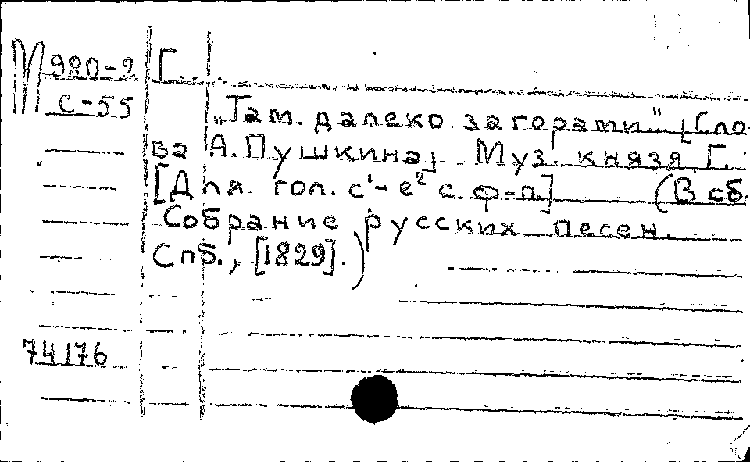 М 980-2 Г...
С-55
„Там далеко за горами“ [Сло-
ва А. Пушкина] Муз. князя Г.
[Для гол. с¹-е² с ф-п.] (В сб.
Собрание русских песен.
Спб., [1829].)
74176